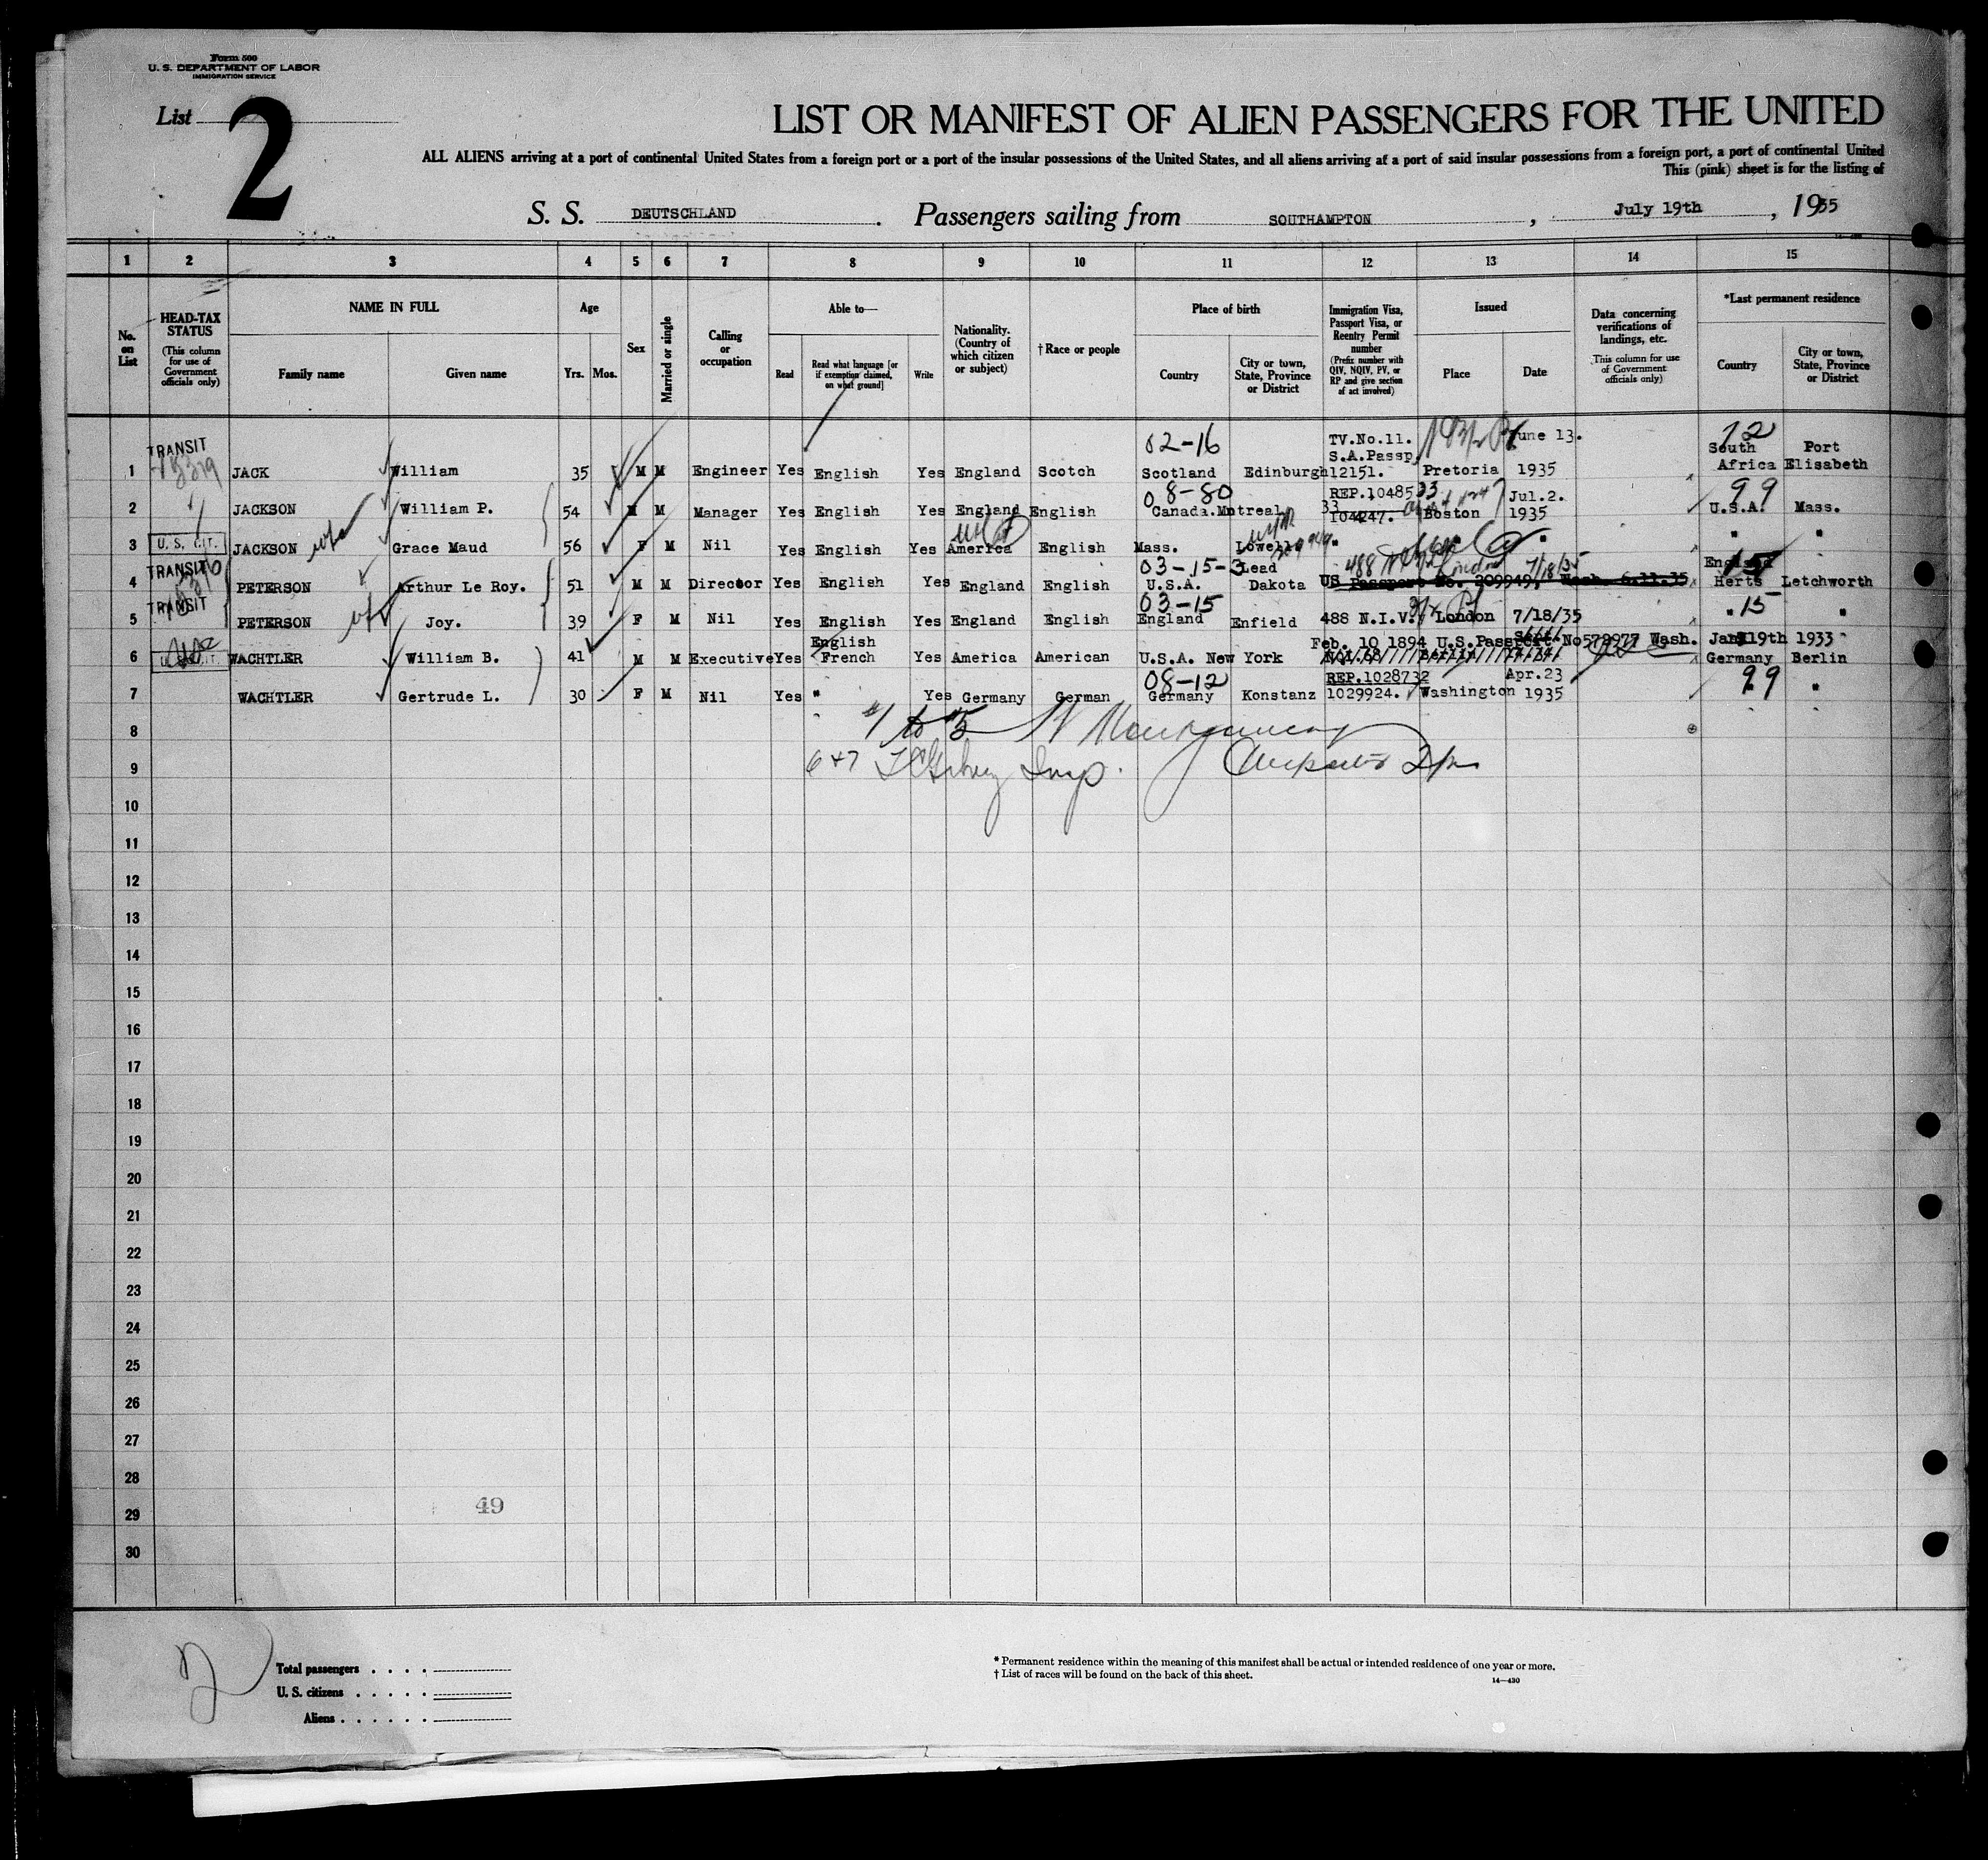 Form 500
U. S. DEPARTMENT OF LABOR
IMMIGRATION SERVICE
List 2
LIST OR MANIFEST OF ALIEN PASSENGERS FOR THE UNITED
ALL ALIENS arriving at a port of continental United States from a foreign port or a port of the insular possessions of the United States, and all aliens arriving at a port of said insular possessions from a foreign port, a port of continental United
This (pink) sheet is for the listing of
S. S. DEUTSCHLAND. Passengers sailing from SOUTHAMPTON, July 19th, 1935
1 2 3 4 5 6 7 8 9 10 11 12 13 14 15
No. on List
HEAD-TAX STATUS (This column for use of Government officials only)
NAME IN FULL
Family name
Given name
Age
Yrs. Mos.
Sex
Married or single
Calling or occupation
Able to—
Read
Read what language [or if exemption claimed, on what ground]
Write
Nationality. (Country of which citizen or subject)
† Race or people
Place of birth
Country
City or town, State, Province or District
Immigration Visa, Passport Visa, or Reentry Permit number (Prefix number with QIV, NQIV, PV, or RP and give section of act involved)
Issued
Place
Date
Data concerning verifications of landings, etc. (This column for use of Government officials only)
*Last permanent residence
Country
City or town, State, Province or District
TRANSIT 02-16 TV.No.11. S.A.Passp. June 13. 12 South Port
1 JACK William 35 M M Engineer Yes English Yes England Scotch Scotland Edinburgh 12151. Pretoria 1935 Africa Elisabeth
08-80 REP.1048533 Jul.2. 99
2 JACKSON William P. 54 M M Manager Yes English Yes England English Canada. Mntreal 104247. Boston 1935 U.S.A. Mass.
3 U. S. CIT. JACKSON wfe Grace Maud 56 F M Nil Yes English Yes America English Mass. Lowell " " " "
TRANSIT 03-15-3 Lead 488 London 7/18/35 England 15
4 PETERSON Arthur Le Roy. 51 M M Director Yes English Yes England English U.S.A. Dakota US Passport No. 209949. Wash. 6.11.35 Herts Letchworth
TRANSIT 03-15
5 PETERSON wf Joy. 39 F M Nil Yes English Yes England English England Enfield 488 N.I.V. London 7/18/35 " 15 "
English Feb. 10 1894 U.S.Passport No 578977 Wash. Jan 19th 1933
6 U. S. CIT. WACHTLER William B. 41 M M Executive Yes French Yes America American U.S.A. New York Berlin Germany Berlin
08-12 REP.1028732 Apr.23 99
7 WACHTLER Gertrude L. 30 F M Nil Yes " Yes Germany German Germany Konstanz 1029924. Washington 1935 "
8 #1 to #5
9 6+7 Insp.
10
11
12
13
14
15
16
17
18
19
20
21
22
23
24
25
26
27
28
29
30
49
2
Total passengers
U. S. citizens
Aliens
* Permanent residence within the meaning of this manifest shall be actual or intended residence of one year or more.
† List of races will be found on the back of this sheet.
14—430